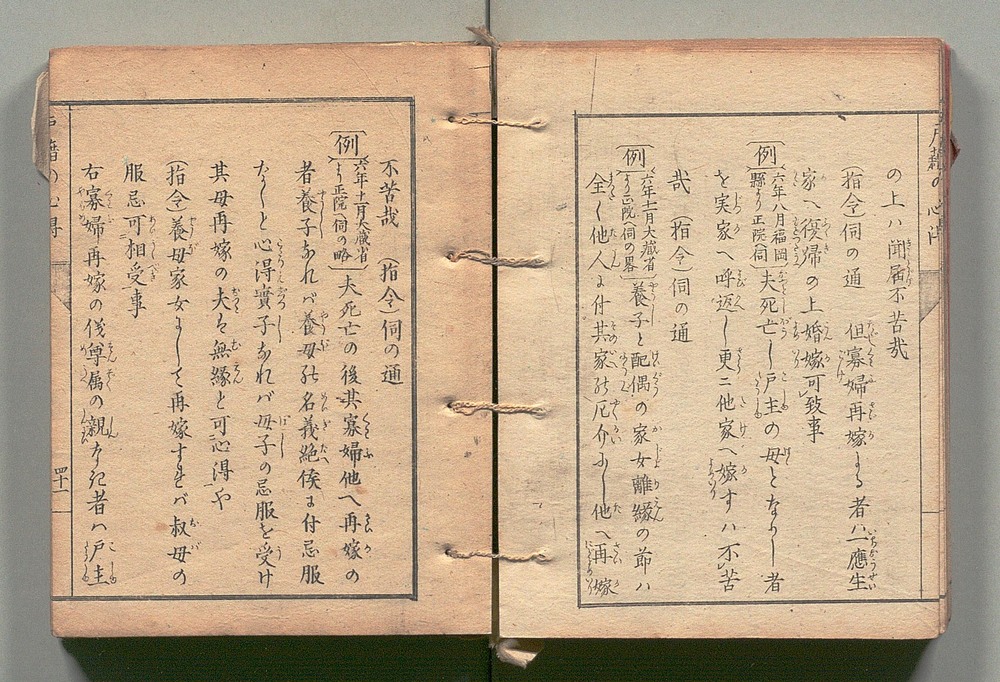 の上ハ聞届不苦哉
(指令)伺の通 但寡婦再嫁する者ハ一應生
家へ復帰の上婚嫁可致事
(例)六年八月福岡縣より正院伺 夫死亡し戸主の母となりし者
を実家へ呼返し更ニ他家へ嫁すハ不苦
哉 (指令)伺の通
(例)六年十一月大蔵省より正院へ伺の畧 養子と配偶の家女離縁の節ハ
全く他人に付其家の厄介にし他へ再嫁
不苦哉 (指令)伺の通
(例)六年十一月大蔵省より正院へ伺の略 夫死亡の後其寡婦他へ再嫁の
者養子なれバ養母の名義絶候に付忌服
なしと心得實子なれバ母子の忌服を受け
其母再嫁の夫を無縁と可心得や
(指令)養母家女にして再嫁すれバ叔母の
服忌可相受事
右寡婦再嫁の儀尊属の親なき者ハ戸主
戸籍の心得
四十一